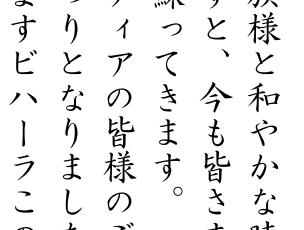 様と和やかな
すと、今も皆さ
ってきます。
ィアの皆様の
りとなりまし
すビハーラこ